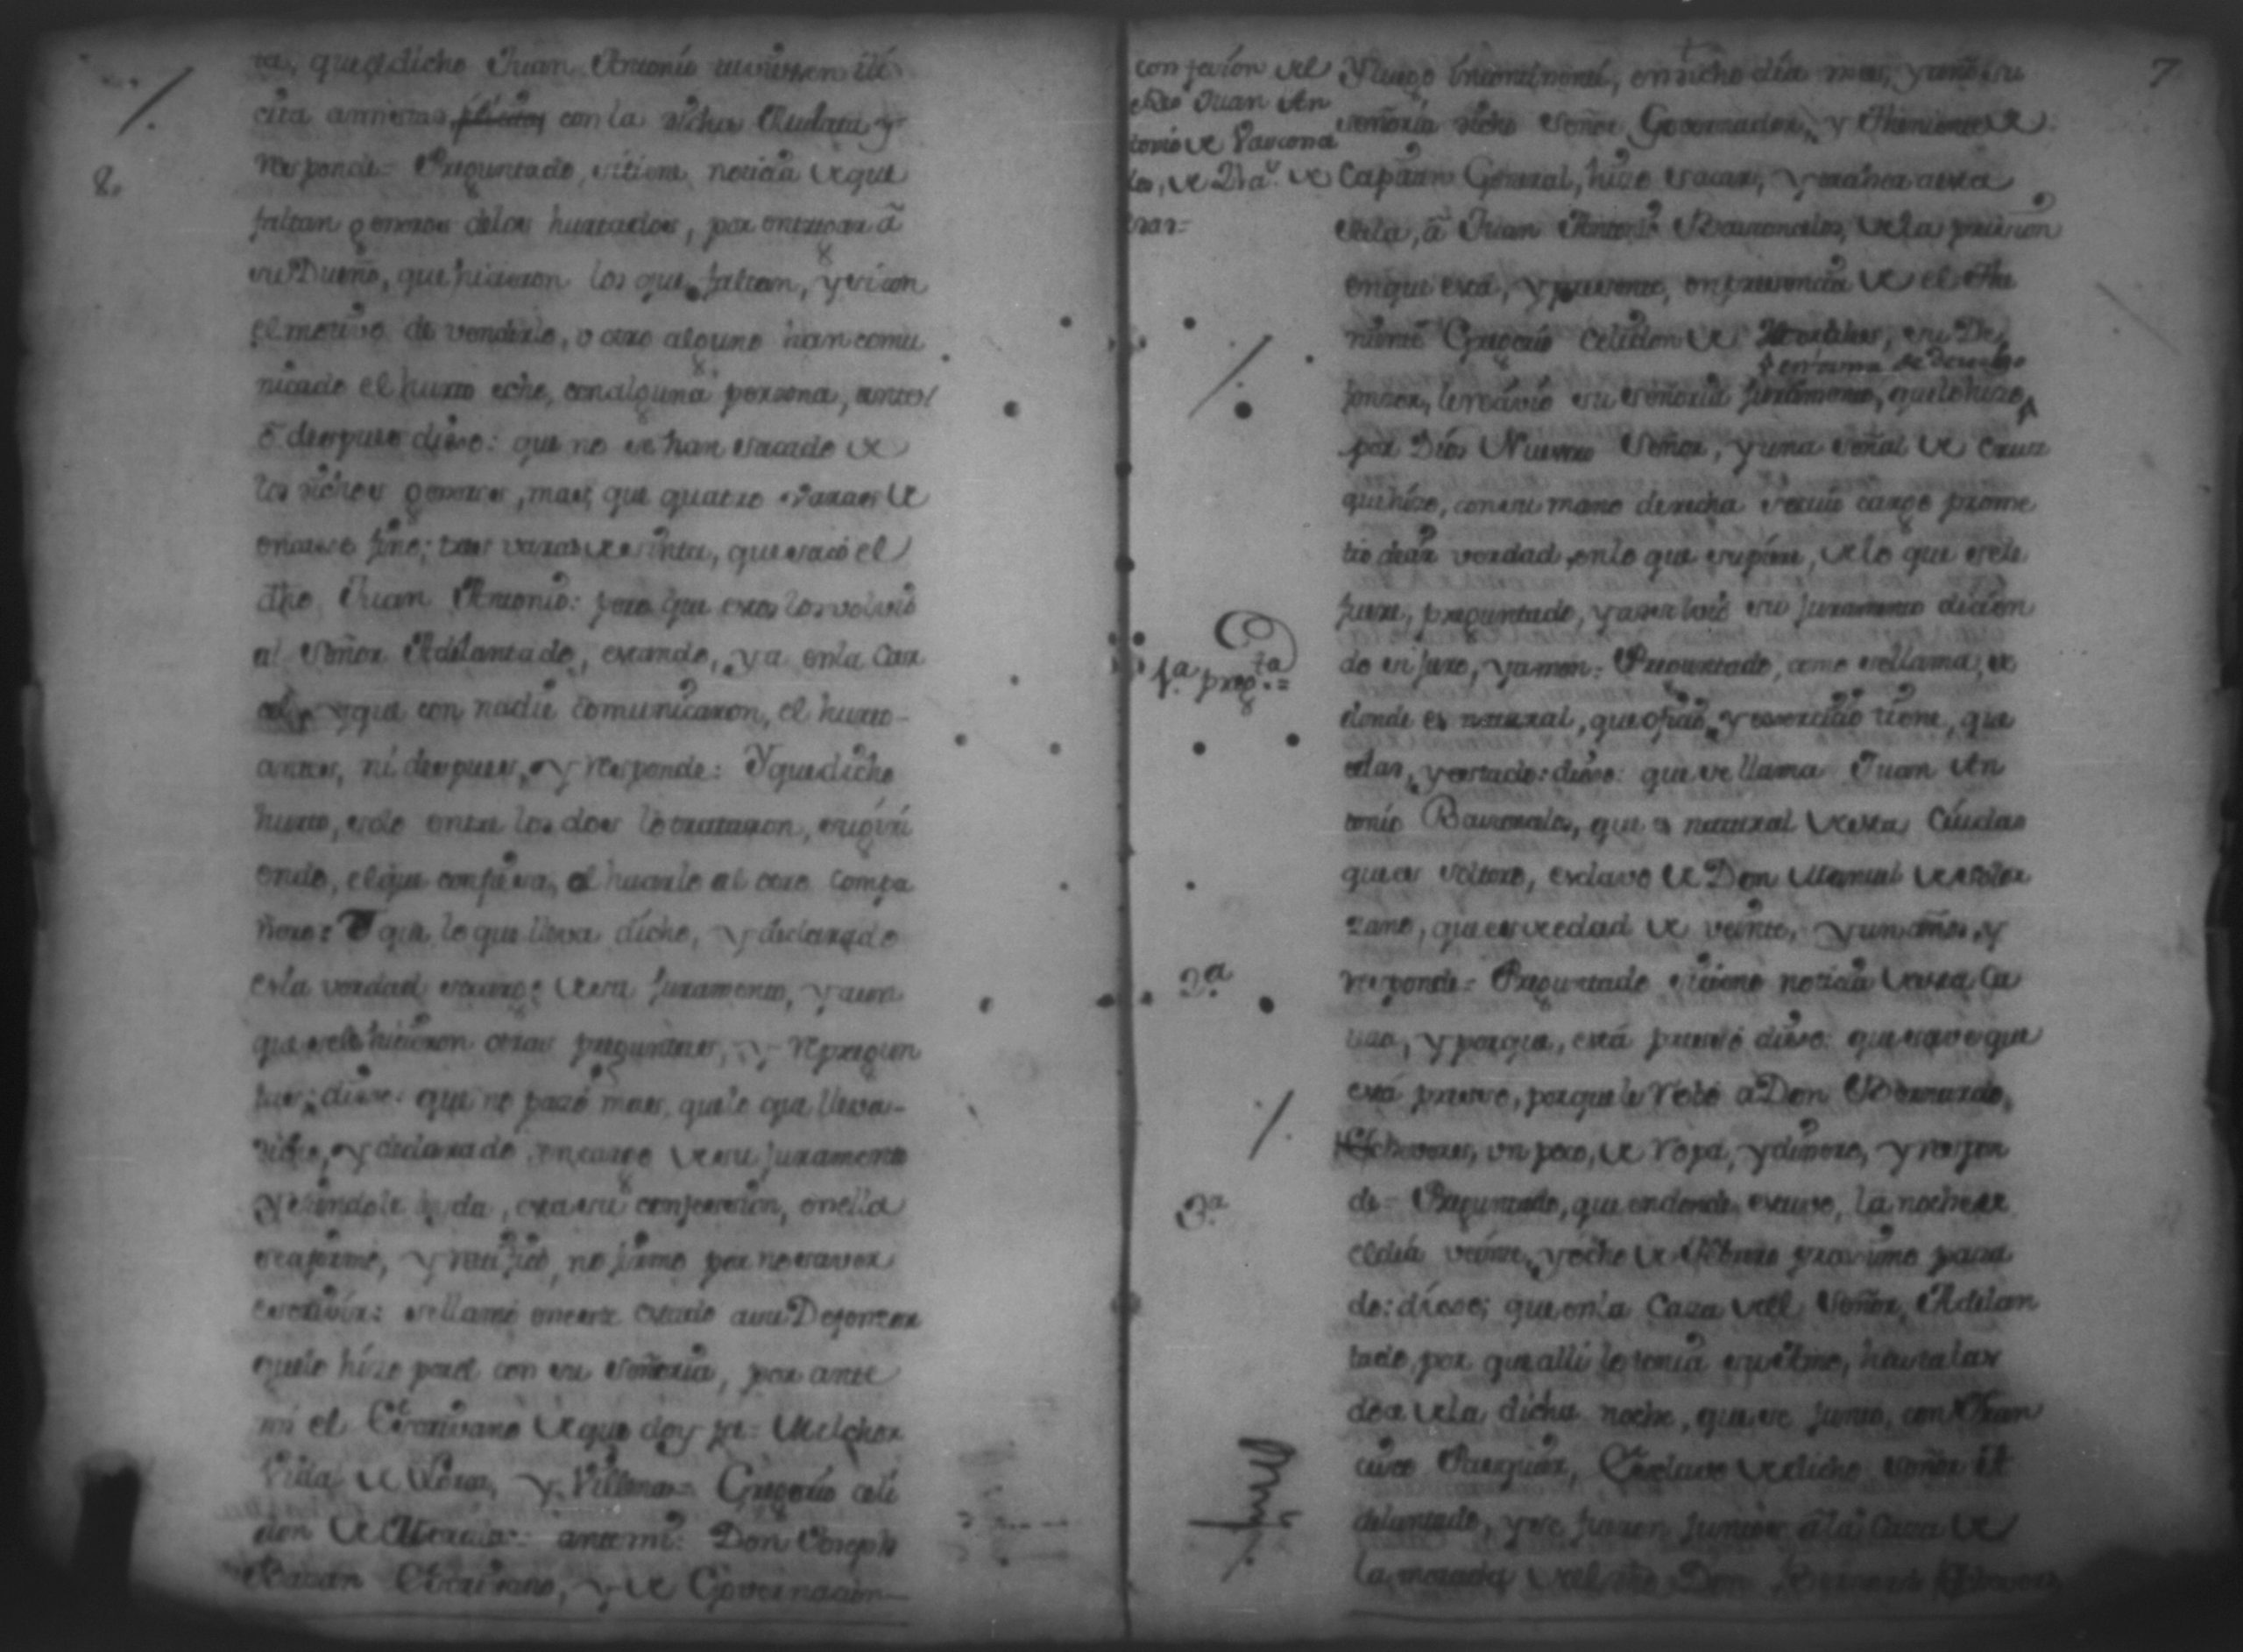 ra, que el dicho Juan Antonio tuviesen ili
cita amistad con la dicha Mulata y
responde = Preguntado, si tiene noticia de que
faltan generos delos hurtados, por entregar â
su Dueño, que hicieron los que faltan, y si con
el motivo de venderlo, o otro alguno han comu
nicado el hurto echo, con alguna persona, antes
ô despues dixo: que no se han sacado de
los dichos generos, mas, que quatro varas de
encaxe fino; tres varas de sinta, que sacó el
dho Juan Antonio: pero que esos los volvio
al Señor Adelantado, estando, ya en la Car
cel, y que con nadie comunicaron, el hurto
antes, ni despues, y responde: Y que dicho
hurto, solo entre los dos lo trataron,
endo, el que confiesa, el hacerlo al otro compa
ñero: Y que lo que lleva dicho, y declarado
es la verdad socargo de su juramento, y aun
que se le hicieron otras preguntas, y repregun
tas; dixo: que no pasó mas, que lo que lleva
dicho, y declarado en cargo de su juramento
y leindole toda, esta su confession, en ella
se afirmó, y ratificó, no firmó por no saver
escrivir: se llamó en este estado a su Defensor
que lo hizo por el con su Señoria, por ante
mi el Escrivano de que doy fe = Melchor
Vidal de Lorca, y Villena = Gregorio celi
don de = ante mi: Don Joseph
Bazan Escrivano, y de Governacion
8.
confesion del
dho Juan An
tonio de Vasconce
los, de 21 aˢ. de
hedad =
1.ª preg.ta =
2.ª
3.ª
7
Y luego incontinenti, en dicho dia mes, y año su
señoria dicho Señor Governador, y Theniente de
Capitan General, hizo sacar, y traher a esta
Sala, â Juan Antonio Basconcelos, de la pricion
en que está, y presente, en presencia de el The
niente Gregorio Celidon de, su De
en forma de derecho
fensor, le recivió su señoria juramento, que lo hizo
por Dios Nuestro Señor, y una señal de Cruz
que hizo, con su mano derecha socuio cargo prome
tio decir verdad, en lo que supiere, de lo que se le
fuere, preguntado, y absolvió su juramento dicien
do si juro, y amen = Preguntado, como se llama, de
donde es natural, que oficio, y exercicio tiene, que
edad, y estado: dixo: que se llama Juan An
tonio Basconcelos, que es natural de esta Ciudad
que es soltero, esclavo de Don Manuel de Solor
zano, que es de edad de veinte, y un años, y
responde = Preguntado si tiene noticia de esta ca
usa, y porque, está preso dixo: que save que
está preso, porque le robó a Don Bernardo,
Echeverz, un poco, de ropa, y dinero, y respon
de = Preguntado, que en donde estuvo, la noche de
el dia veinte, y ocho de Febrero proximo pasa
do: dixo; que en la Caza del Señor Adelan
tado, por que alli lo tenia su Amo, hasta las
doce de la dicha noche, que se junto, con Fran
cisco Pasqual, Esclavo de dicho Señor A
delantado, y se fueron juntos â la Caza de
la morada del dho Don Bernardo Echeverz